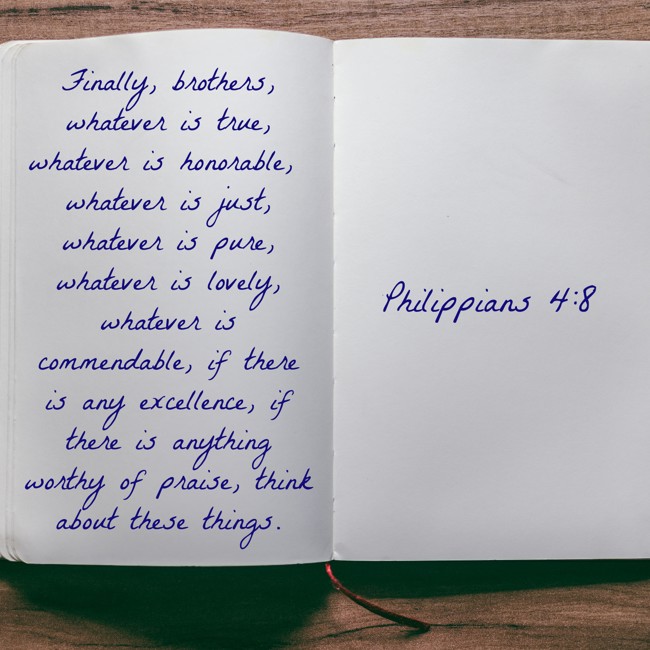 Finally, brothers,
whatever is true,
whatever is honorable,
whatever is just,
whatever is pure,
whatever is lovely,
whatever is
commendable, if there
is any excellence, if
there is anything
worthy of praise, think
about these things.
Philippians 4:8